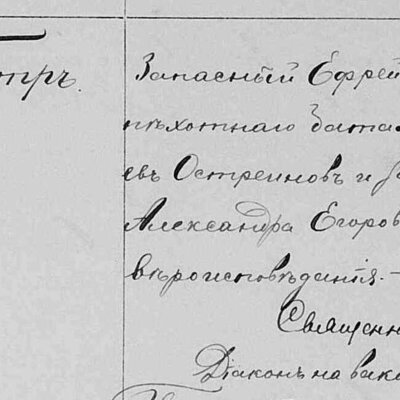 тръ. Запасный Ефрей
пѣхотнаго бата
евъ Остреиновъ и за
Александра Егоров
вѣроисповѣданія.-
Священн
Діаконъ на вака